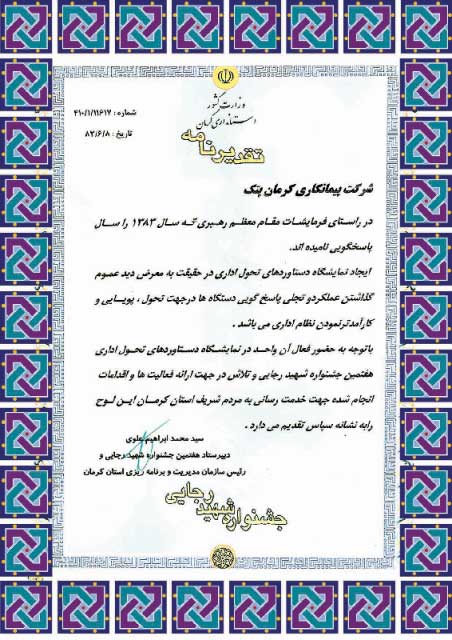 وزارت کشور
استانداری کرمان
شماره : ۴۱۰/۱/۱۱۶۱۷
تاریخ : ۸۳/۶/۸
تقدیرنامه
شرکت پیمانکاری کرمان پتک
در راستای فرمایشات مقام معظم رهبری که سال ۱۳۸۳ را سال
پاسخگویی نامیده اند.
ایجاد نمایشگاه دستاوردهای تحول اداری در حقیقت به معرض دید عموم
گذاشتن عملکرد و تجلی پاسخ گویی دستگاه ها درجهت تحول ، پویایی و
کارآمدترنمودن نظام اداری می باشد .
باتوجه به حضور فعال آن واحد در نمایشگاه دستاوردهای تحول اداری
هفتمین جشنواره شهید رجایی و تلاش در جهت ارائه فعالیت ها و اقدامات
انجام شده جهت خدمت رسانی به مردم شریف استان کرمان این لوح
رابه نشانه سپاس تقدیم می دارد .
سید محمد ابراهیم علوی
دبیرستاد هفتمین جشنواره شهید رجایی و
رئیس سازمان مدیریت و برنامه ریزی استان کرمان
جشنواره شهید رجایی